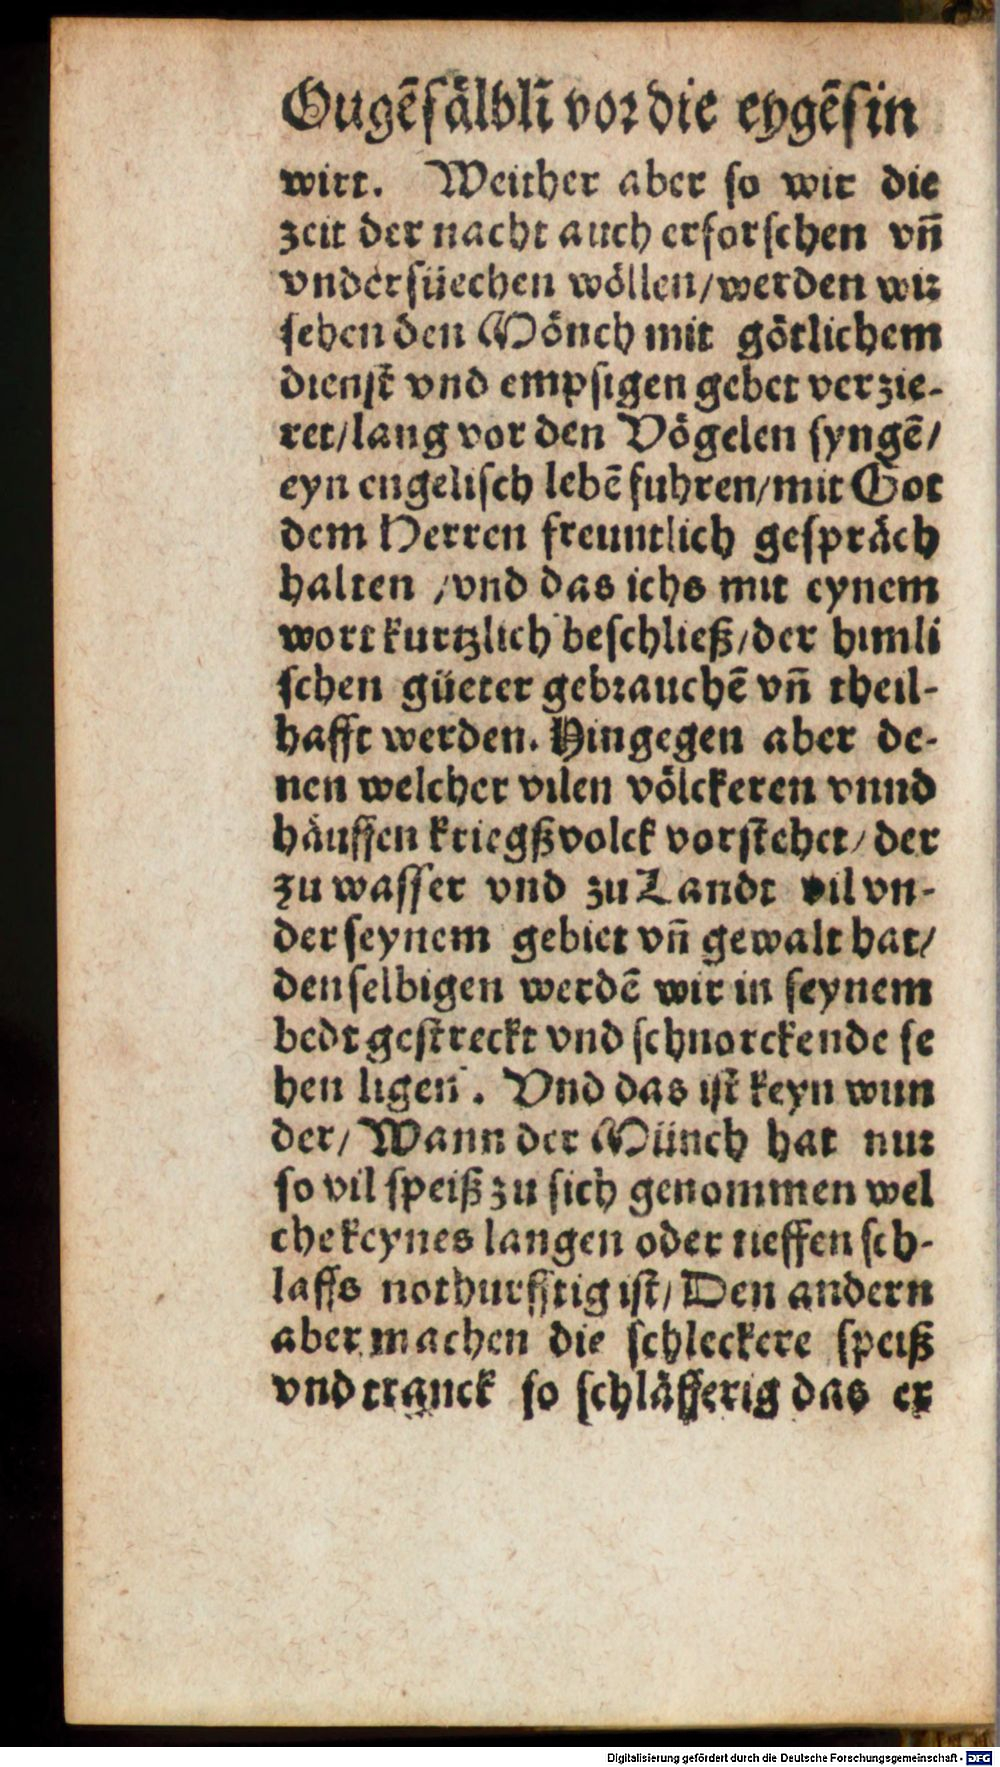 Gugēsälblī vor die eygēsin
wirt. Weither aber so wir die
zeit der nacht auch erforschen vn̄
vndersüechen wöllen/werden wir
sehen den Mönch mit götlichem
dienst vnd empsigen gebet verzie-
ret/lang vor den Vögelen syngē/
eyn engelisch lebē fuhren/mit Got
dem Herren freuntlich gespräch
halten /vnd das ichs mit eynem
wort kurtzlich beschließ/der himli
schen güeter gebrauchē vn̄ theil-
hafft werden. Hingegen aber de-
nen welcher vilen völckeren vnnd
häuffen kriegßvolck vorstehet/ der
zu wasser vnd zu Landt vil vn-
der seynem gebiet vn̄ gewalt hat/
denselbigen werdē wir in seynem
bedt gestreckt vnd schnorckende se
hen ligen. Vnd das ist keyn wun
der/ Wann der Münch hat nur
so vil speiß zu sich genommen wel
che keynes langen oder tieffen sch-
laffs nothurfftig ist/ Den andern
aber machen die schleckere speiß
vnd tranck so schläfferig das er
Digitalisierung gefördert durch die Deutsche Forschungsgemeinschaft - DFG